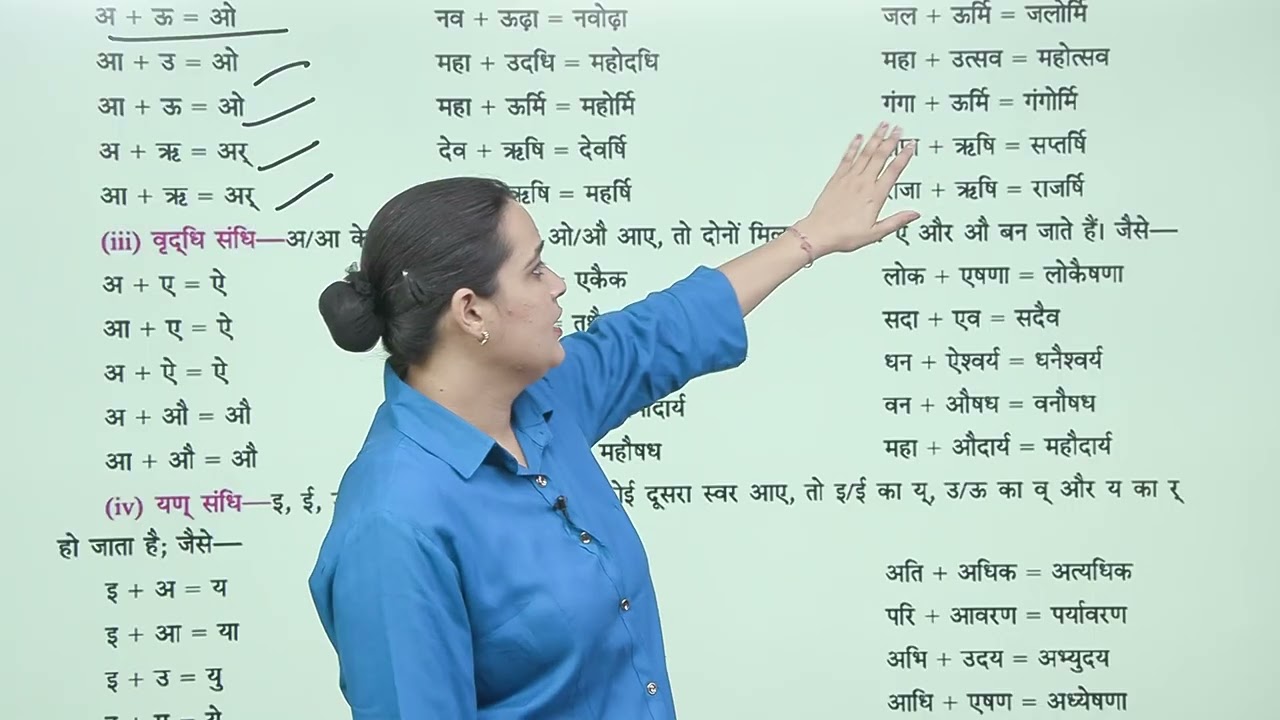 अ + ऊ = ओ नव + ऊढ़ा = नवोढ़ा जल + ऊर्मि = जलोर्मि
आ + उ = ओ महा + उदधि = महोदधि महा + उत्सव = महोत्सव
आ + ऊ = ओ महा + ऊर्मि = महोर्मि गंगा + ऊर्मि = गंगोर्मि
अ + ऋ = अर् देव + ऋषि = देवर्षि + ऋषि = सप्तर्षि
आ + ऋ = अर् ऋषि = महर्षि राजा + ऋषि = राजर्षि
(iii) वृद्धि संधि—अ/आ के ओ/औ आए, तो दोनों ऐ और औ बन जाते हैं। जैसे—
अ + ए = ऐ एकैक लोक + एषणा = लोकैषणा
आ + ए = ऐ = सदा + एव = सदैव
अ + ऐ = ऐ धन + ऐश्वर्य = धनैश्वर्य
अ + औ = औ वन + औषध = वनौषध
आ + औ = औ महौषध महा + औदार्य = महौदार्य
(iv) यण् संधि—इ, ई, दूसरा स्वर आए, तो इ/ई का य्, उ/ऊ का व् और य का र्
हो जाता है; जैसे—
इ + अ = य अति + अधिक = अत्यधिक
इ + आ = या परि + आवरण = पर्यावरण
इ + उ = यु अभि + उदय = अभ्युदय
आधि + एषण = अध्येषणा